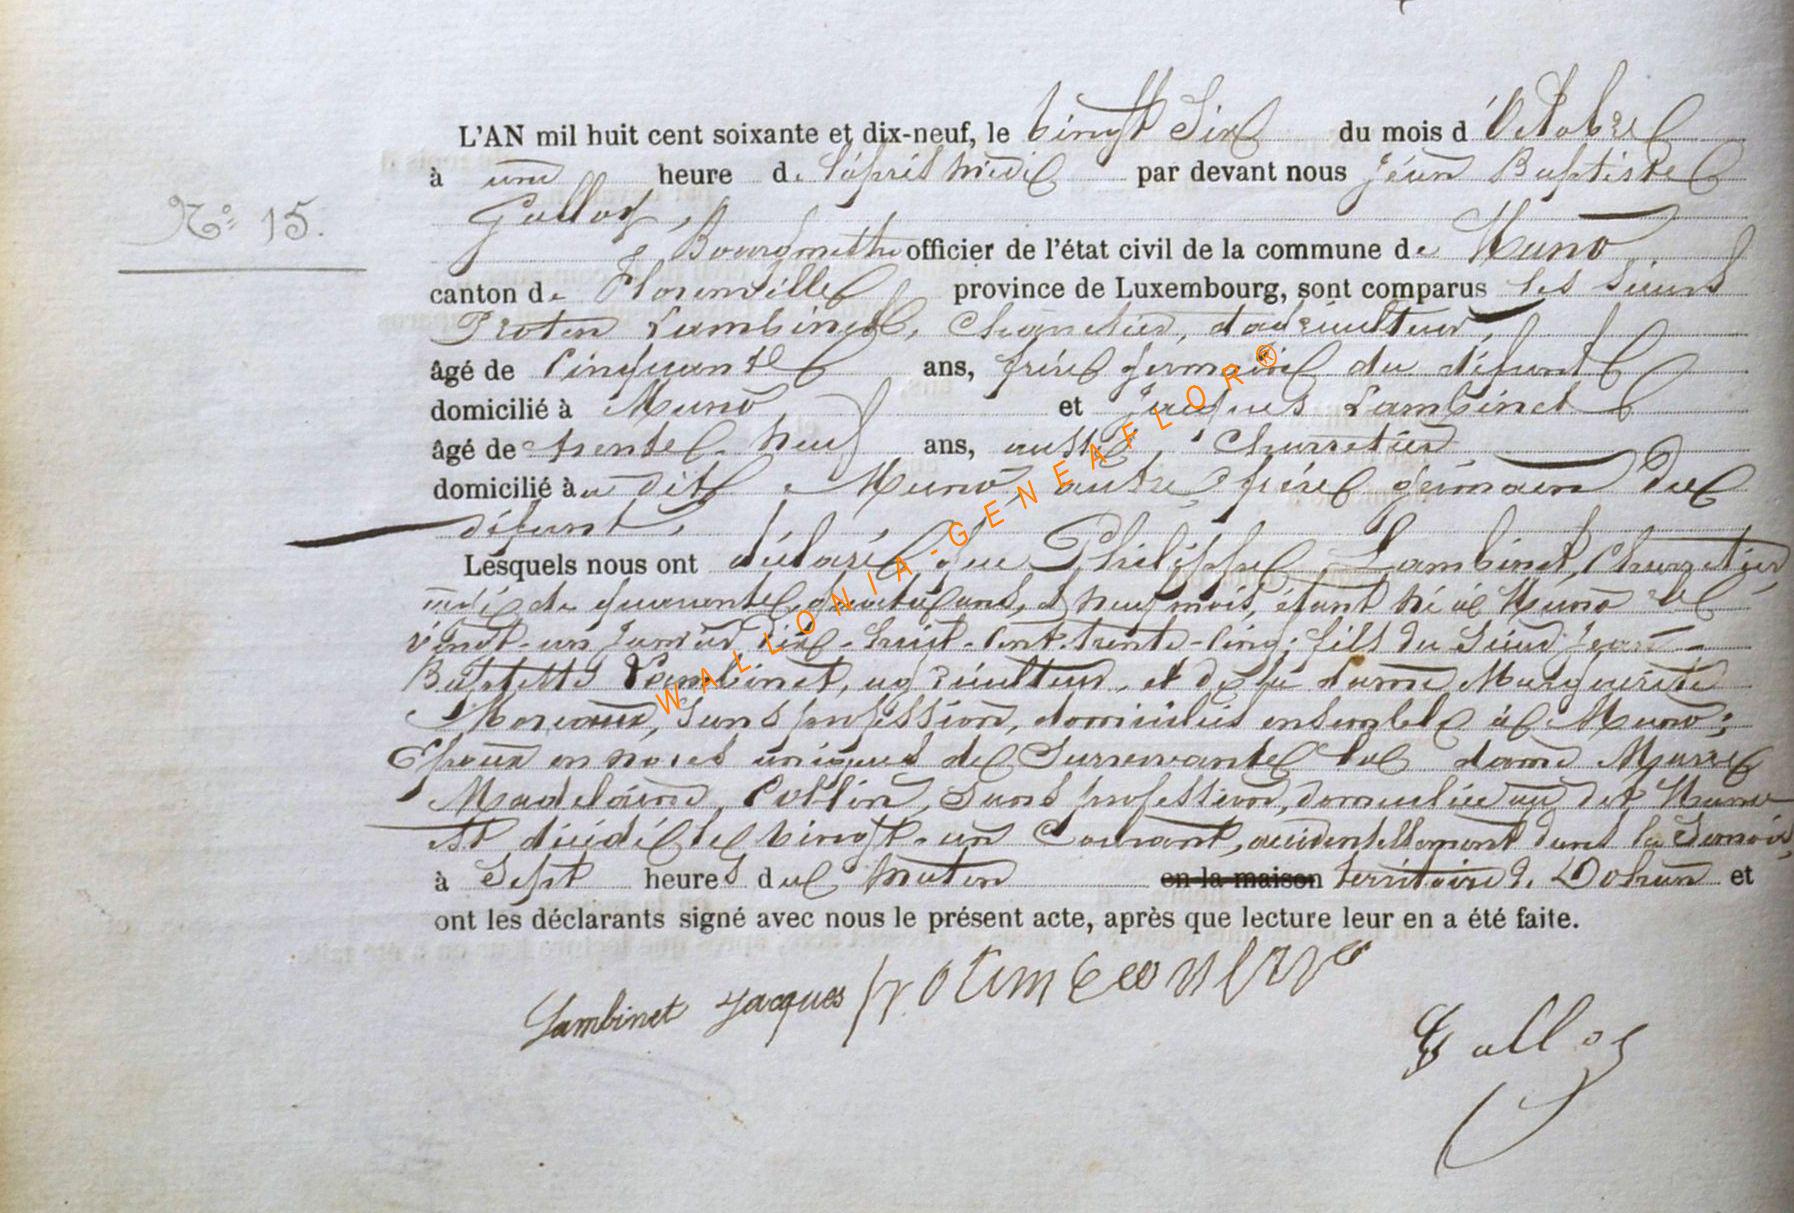 L'AN mil huit cent soixante et dix-neuf, le vingt Six du mois d'Octobre
à une heure de l'après midi par devant nous Jean Baptiste
N° 15.
Galloy,
Bourgmestre officier de l'état civil de la commune de Muno
canton de Florenville province de Luxembourg, sont comparus les sieurs
Lambinet, Charretier, agriculteur,
âgé de cinquante ans, frère germain du défunt
domicilié à Muno, et Jacques Lambinet
âgé de trente neuf ans, aussi Charretier
domicilié au dit Muno, autre frère germain du
défunt,
Lesquels nous ont déclaré que Philippe Lambinet, Charretier
de quarante quatre ans, et neuf mois, étant né à Muno le
vingt-un Janvier dix-huit-cent-trente-cinq; fils du Sieur Jean-
Baptiste Lambinet, agriculteur, et de la dame Marguerite
sans profession, domiciliés ensemble à Muno;
Epoux en noces uniques de Survivante la dame Marie
Madelaine, Collin, Sans profession, domiciliée au dit Muno
est décédé le vingt-un Courant, accidentellement dans la Semois,
à Sept heures du matin en la maison territoire de Dohan et
ont les déclarants signé avec nous le présent acte, après que lecture leur en a été faite.
Lambinet Jacques
Galloy
WALLONIA-GENEAFLOR®